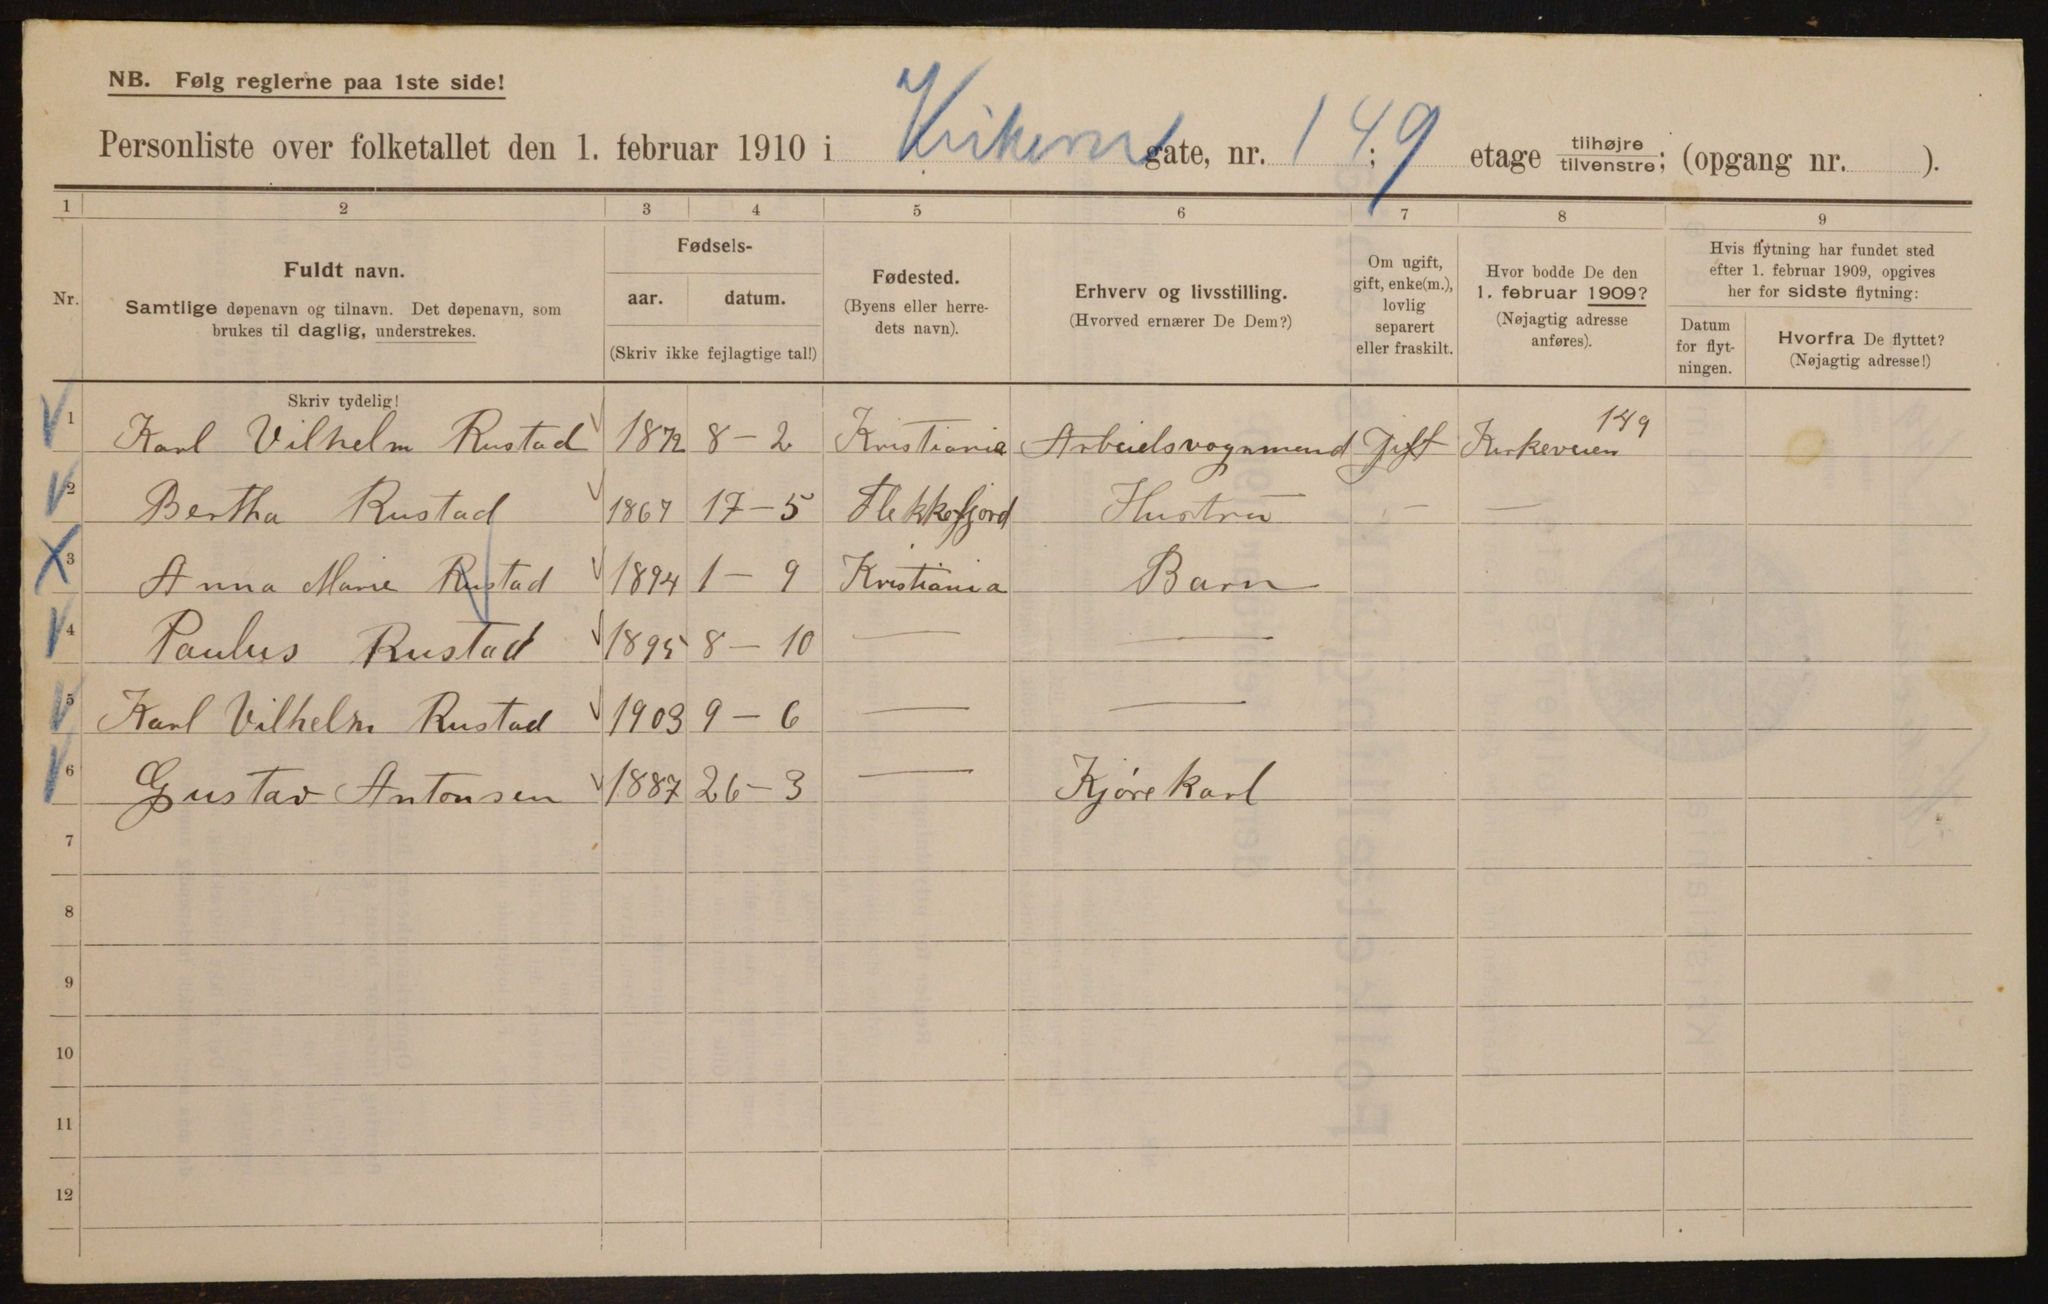 NB. Følg reglerne paa 1ste side!
Personliste over folketallet den 1. februar 1910 i Kirkevei gate, nr. 149; etage tilhøjre tilvenstre; (opgang nr. ).
1 2 3 4 5 6 7 8 9
Nr.
Fuldt navn.
Samtlige døpenavn og tilnavn. Det døpenavn, som
brukes til daglig, understrekes.
Fødsels-
aar. datum.
(Skriv ikke fejlagtige tal!)
Fødested.
(Byens eller herre-
dets navn).
Erhverv og livsstilling.
(Hvorved ernærer De Dem?)
Om ugift,
gift, enke(m.),
lovlig
separert
eller fraskilt.
Hvor bodde De den
1. februar 1909?
(Nøjagtig adresse
anføres).
Hvis flytning har fundet sted
efter 1. februar 1909, opgives
her for sidste flytning:
Datum
for flyt-
ningen.
Hvorfra De flyttet?
(Nøjagtig adresse!)
Skriv tydelig!
1 Karl Vilhelm Rustad 1872 8 – 2 Kristiania Arbeidsvognmand Gift Kirkeveien 149
2 Bertha Rustad 1867 17 – 5 Flekkefjord Hustru — —
3 Anna Marie Rustad 1894 1 – 9 Kristiania Barn
4 Paulus Rustad 1895 8 – 10 — —
5 Karl Vilhelm Rustad 1903 9 – 6 — —
6 Gustav Antonsen 1887 26 – 3 — Kjørekarl
7
8
9
10
11
12